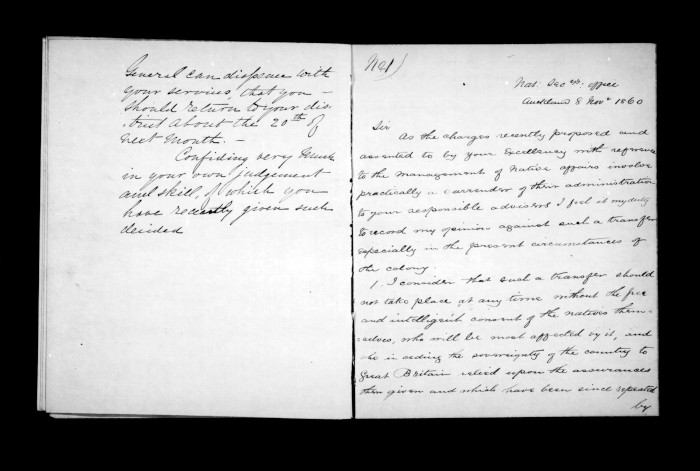 General can dispense with
your services, that you —
should return to your dis
-trict about the 20th of
next month. —
Confiding very much
in your own judgement
and skill, of which you
have recently given such
decided
No 1)
Nat: Secys: Office
Auckland 8 Novr 1860
Sir
As the changes recently proposed and
assented to by your Excellency with reference
to the management of Native affairs involve
practically a surrender of their administration
to your responsible advisers I feel it my duty
to record my opinion against such a transfer
especially in the present circumstances of
the colony.
1. I consider that such a transfer should
not take place at any time without the free
and intelligent consent of the natives them-
-selves, who will be most affected by it, and
who in ceding the sovereignty of the country to
Great Britain relied upon the assurances
then given and which have been since repeated
by